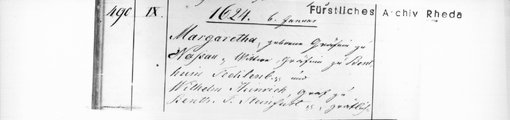 490 IX. 1624. 6. Januar Fürstliches Archiv Rheda
Margaretha, geborene Gräfin zu
Nassau, Wittwe, Gräfin zu Bent
heim Tecklenb. und
Wilhelm Heinrich, Graf zu
Benth. S. Steinfurt gräflich